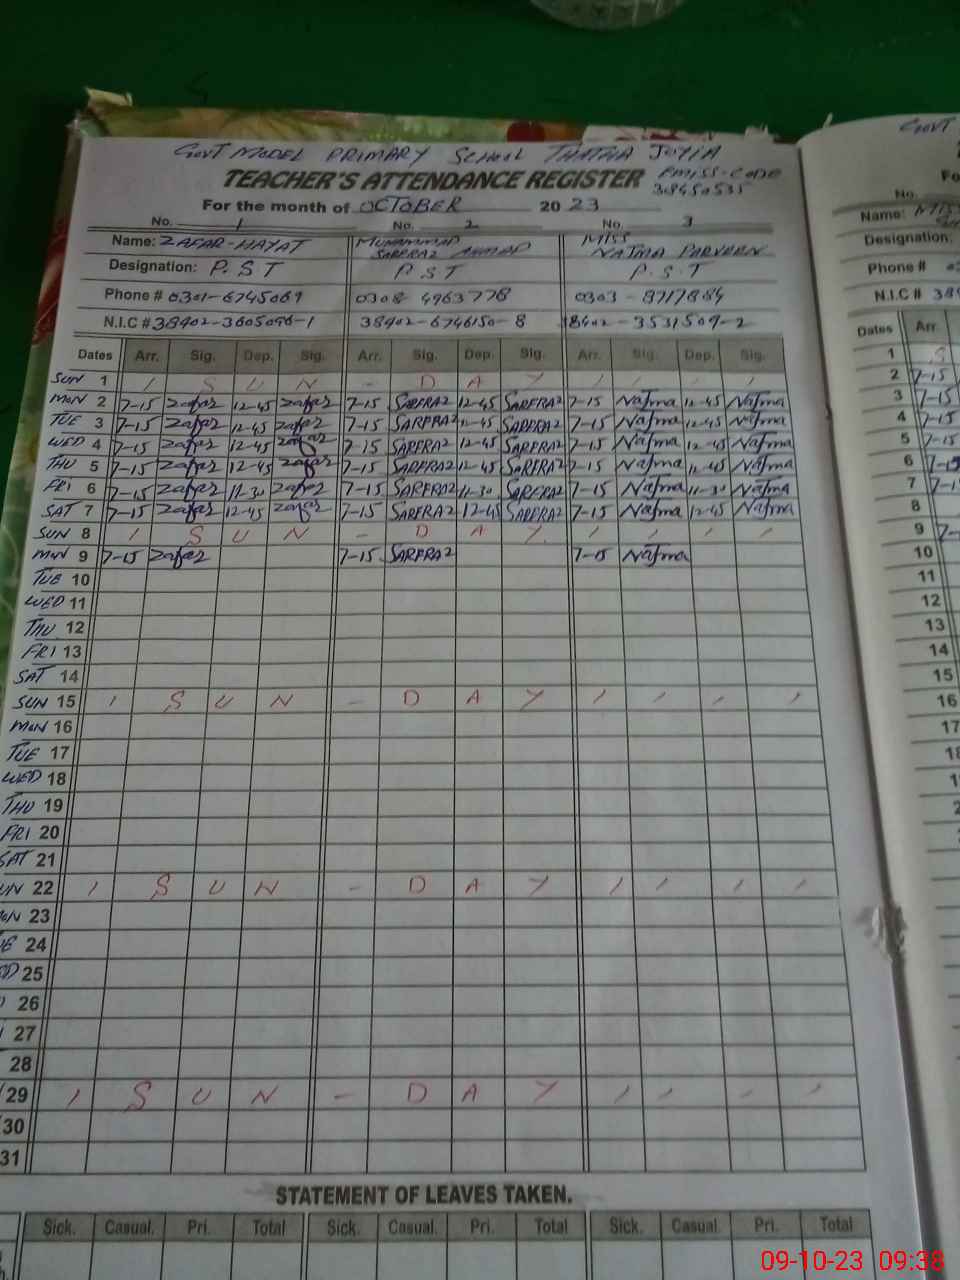 GOVT MODEL PRIMARY SCHOOL THATHA JOYIA
TEACHER'S ATTENDANCE REGISTER EMISS-CODE
38450535
For the month of OCTOBER 2023
No. 1 No. 2 No. 3
Name: ZAFAR-HAYAT MUHAMMAD SARFRAZ AHMAD MISS NAJMA PARVEEN
Designation: P.S.T P.S.T P.S.T
Phone # 0301-6745069 0308 4963778 0303-8717884
N.I.C # 38402-3605096-1 38402-6746150-8 38402-3531509-2
Dates Arr. Sig. Dep. Sig. Arr. Sig. Dep. Sig. Arr. Sig. Dep. Sig.
SUN 1 S U N - D A Y
MON 2 7-15 Zafar 12-45 Zafar 7-15 SARFRAZ 12-45 SARFRAZ 7-15 Najma 12-45 Najma
TUE 3 7-15 Zafar 12-45 Zafar 7-15 SARFRAZ 12-45 SARFRAZ 7-15 Najma 12-45 Najma
WED 4 7-15 Zafar 12-45 Zafar 7-15 SARFRAZ 12-45 SARFRAZ 7-15 Najma 12-45 Najma
THU 5 7-15 Zafar 12-45 Zafar 7-15 SARFRAZ 12-45 SARFRAZ 7-15 Najma 12-45 Najma
FRI 6 7-15 Zafar 11-30 Zafar 7-15 SARFRAZ 11-30 SARFRAZ 7-15 Najma 11-30 Najma
SAT 7 7-15 Zafar 12-45 Zafar 7-15 SARFRAZ 12-45 SARFRAZ 7-15 Najma 12-45 Najma
SUN 8 S U N - D A Y
MON 9 7-15 Zafar 7-15 SARFRAZ 7-15 Najma
TUE 10
WED 11
THU 12
FRI 13
SAT 14
SUN 15 S U N - D A Y
MON 16
TUE 17
WED 18
THU 19
FRI 20
SAT 21
UN 22 S U N - D A Y
ON 23
UE 24
ED 25
26
27
28
29 S U N - D A Y
30
31
STATEMENT OF LEAVES TAKEN.
Sick. Casual. Pri. Total Sick. Casual. Pri. Total Sick. Casual. Pri. Total
GOVT
Fo
No.
Name: MISS
Designation:
Phone # 03
N.I.C # 384
Dates Arr.
1 S
2 7-15
3 7-15
4 7-15
5 7-15
6 7-15
7 7-1
8
9 7-
10
11
12
13
14
15
16
17
18
09-10-23 09:38